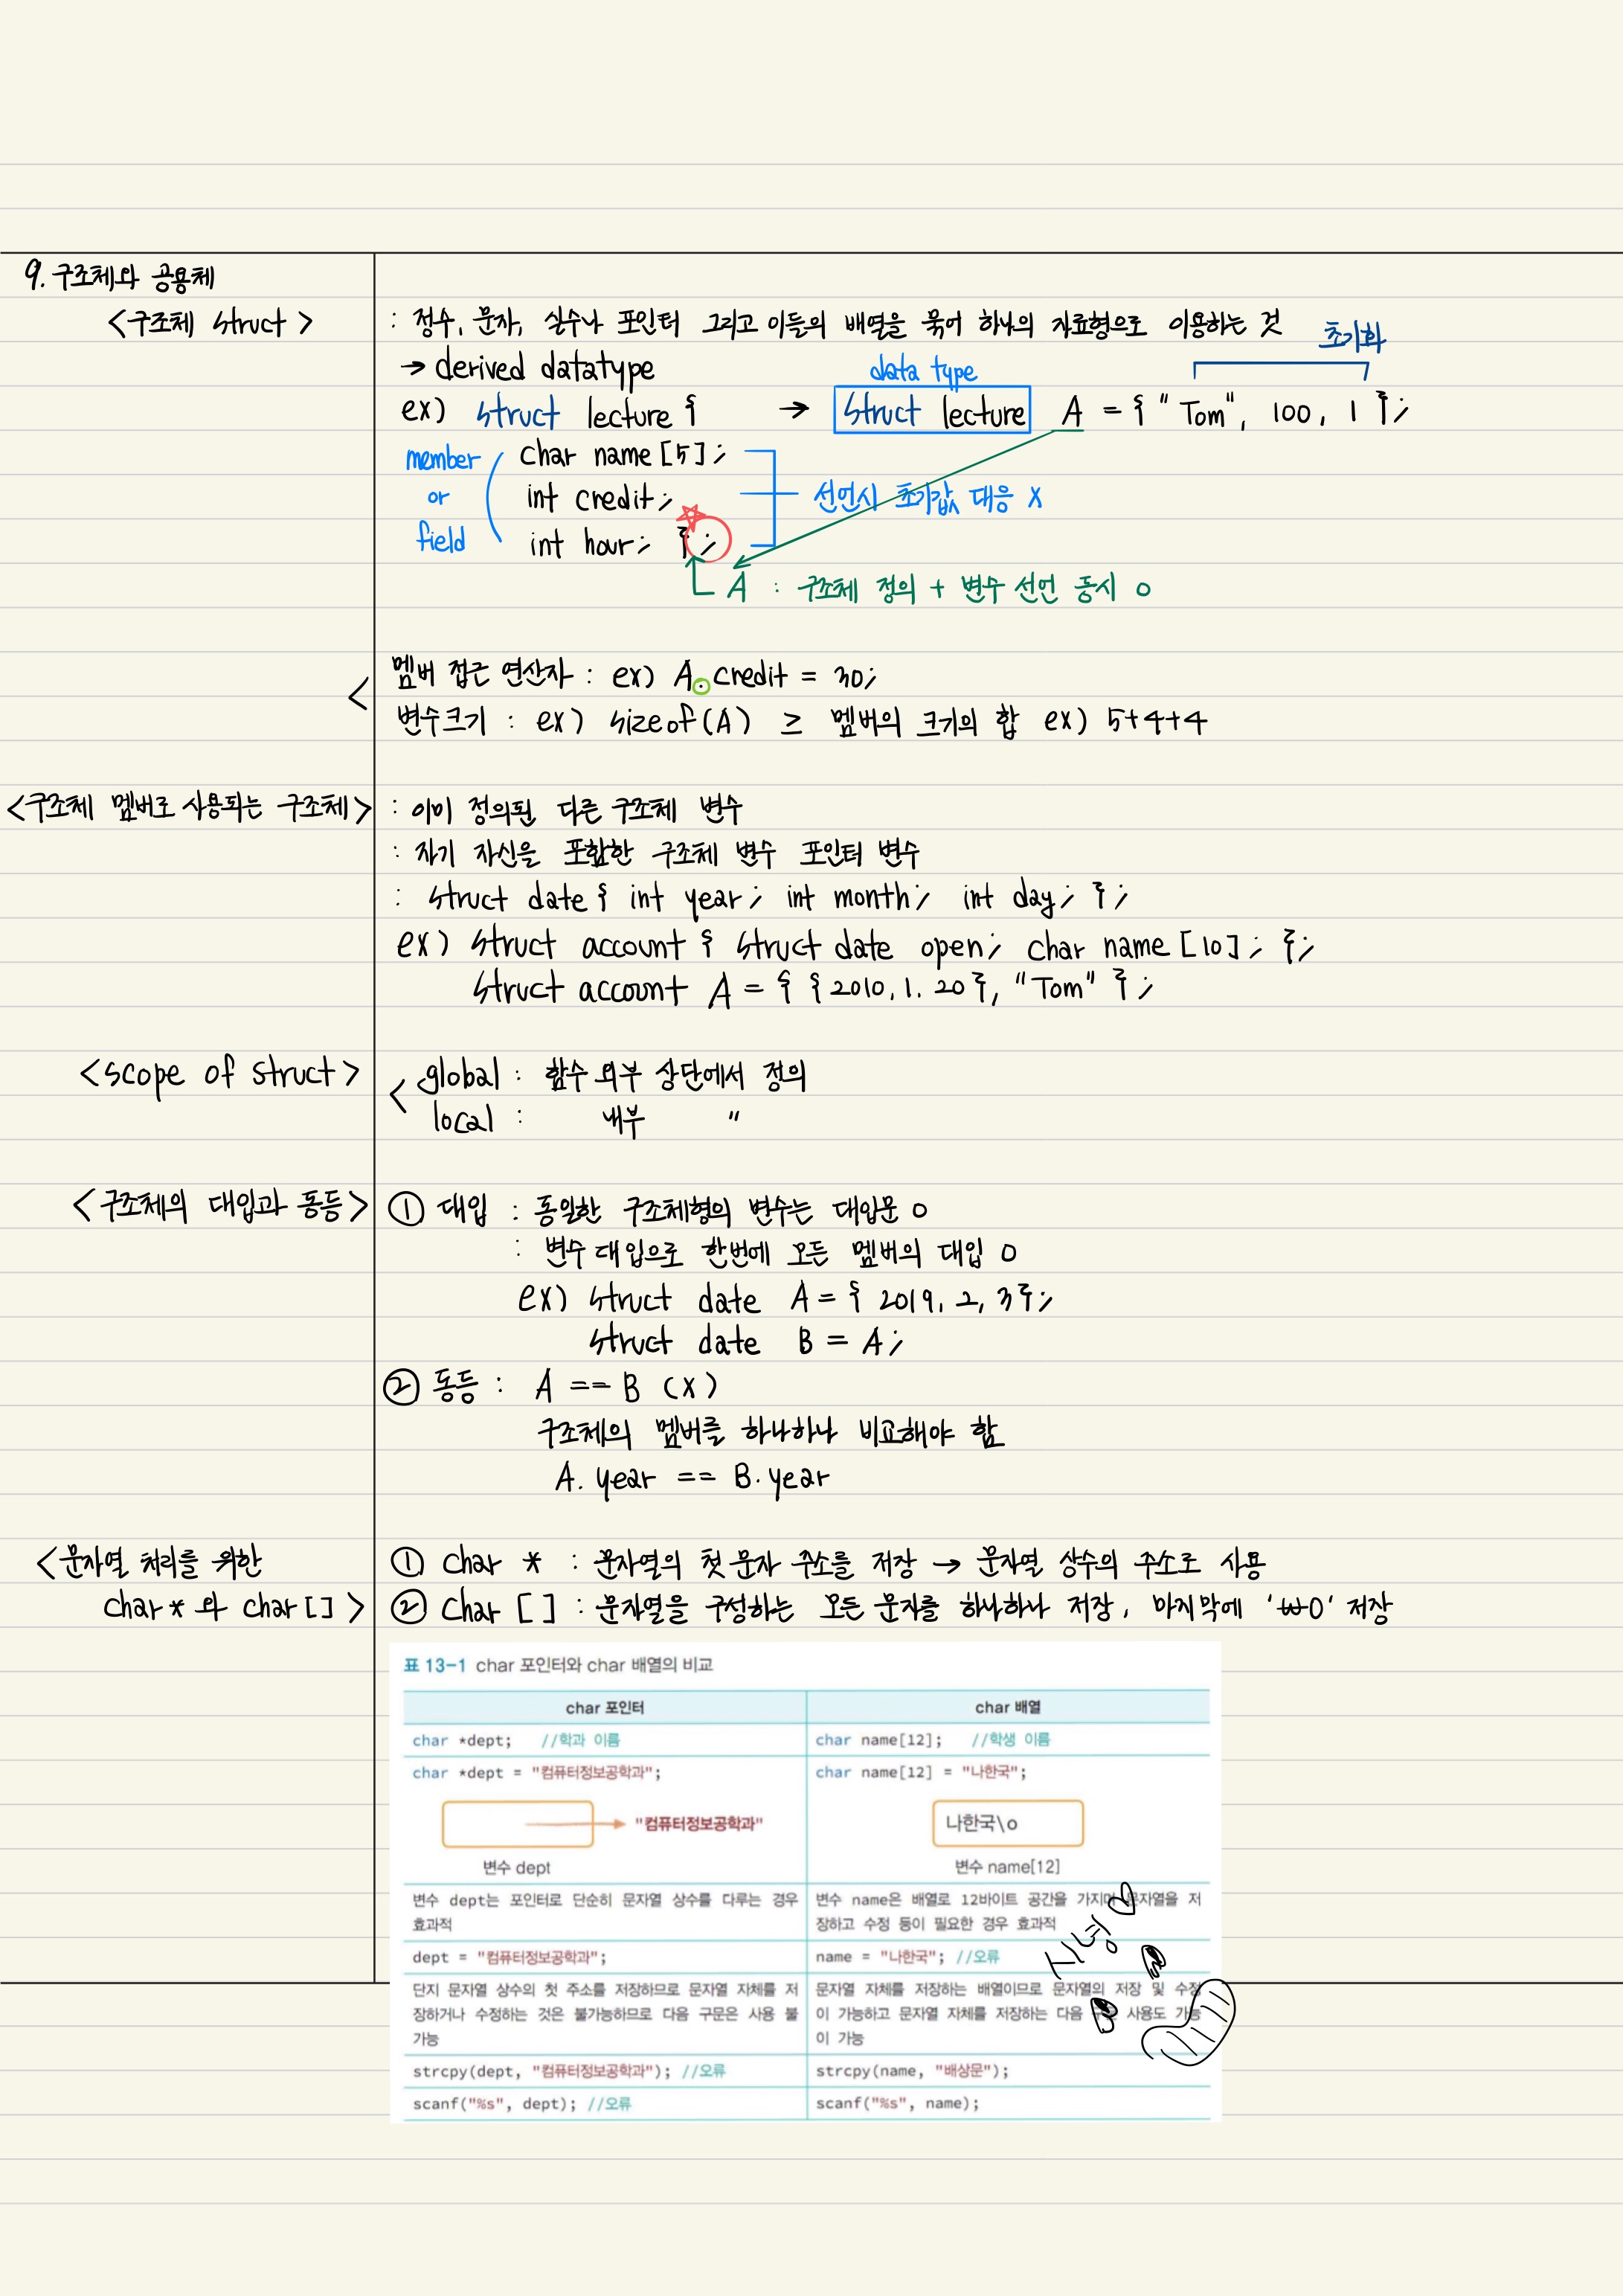 9. 구조체와 공용체
<구조체 struct>
: 정수, 문자, 실수나 포인터 그리고 이들의 배열을 묶어 하나의 자료형으로 이용하는 것
→ derived datatype
data type
초기화
ex) struct lecture { → struct lecture A = { "Tom", 100, 1 };
member or field
char name [5];
int credit;
int hour; };
선언시 초기값 대응 X
A : 구조체 정의 + 변수 선언 동시 O
< 멤버 접근 연산자 : ex) A.credit = 30;
변수크기 : ex) sizeof(A) ≥ 멤버의 크기의 합 ex) 5+4+4
<구조체 멤버로 사용되는 구조체>
: 이미 정의된 다른 구조체 변수
: 자기 자신을 포함한 구조체 변수 포인터 변수
: struct date { int year; int month; int day; };
ex) struct account { struct date open; char name [10]; };
struct account A = { {2010, 1, 20}, "Tom" };
<scope of struct>
< global : 함수 외부 상단에서 정의
local : 내부 "
<구조체의 대입과 동등>
① 대입 : 동일한 구조체형의 변수는 대입문 O
: 변수 대입으로 한번에 모든 멤버의 대입 O
ex) struct date A = { 2019, 2, 3};
struct date B = A;
② 동등 : A == B (X)
구조체의 멤버를 하나하나 비교해야 함
A. year == B. year
<문자열 처리를 위한
char* 와 char[]>
① char * : 문자열의 첫 문자 주소를 저장 → 문자열 상수의 주소로 사용
② char [] : 문자열을 구성하는 모든 문자를 하나하나 저장, 마지막에 '₩0' 저장
표 13-1 char 포인터와 char 배열의 비교
char 포인터
char 배열
char *dept; //학과 이름
char name[12]; //학생 이름
char *dept = "컴퓨터정보공학과";
char name[12] = "나한국";
"컴퓨터정보공학과"
나한국\o
변수 dept
변수 name[12]
변수 dept는 포인터로 단순히 문자열 상수를 다루는 경우
효과적
변수 name은 배열로 12바이트 공간을 가지며 문자열을 저
장하고 수정 등이 필요한 경우 효과적
시녕♡
dept = "컴퓨터정보공학과";
name = "나한국"; //오류
단지 문자열 상수의 첫 주소를 저장하므로 문자열 자체를 저
장하거나 수정하는 것은 불가능하므로 다음 구문은 사용 불
가능
문자열 자체를 저장하는 배열이므로 문자열의 저장 및 수정
이 가능하고 문자열 자체를 저장하는 다음 사용도 가능
이 가능
strcpy(dept, "컴퓨터정보공학과"); //오류
strcpy(name, "배상문");
scanf("%s", dept); //오류
scanf("%s", name);